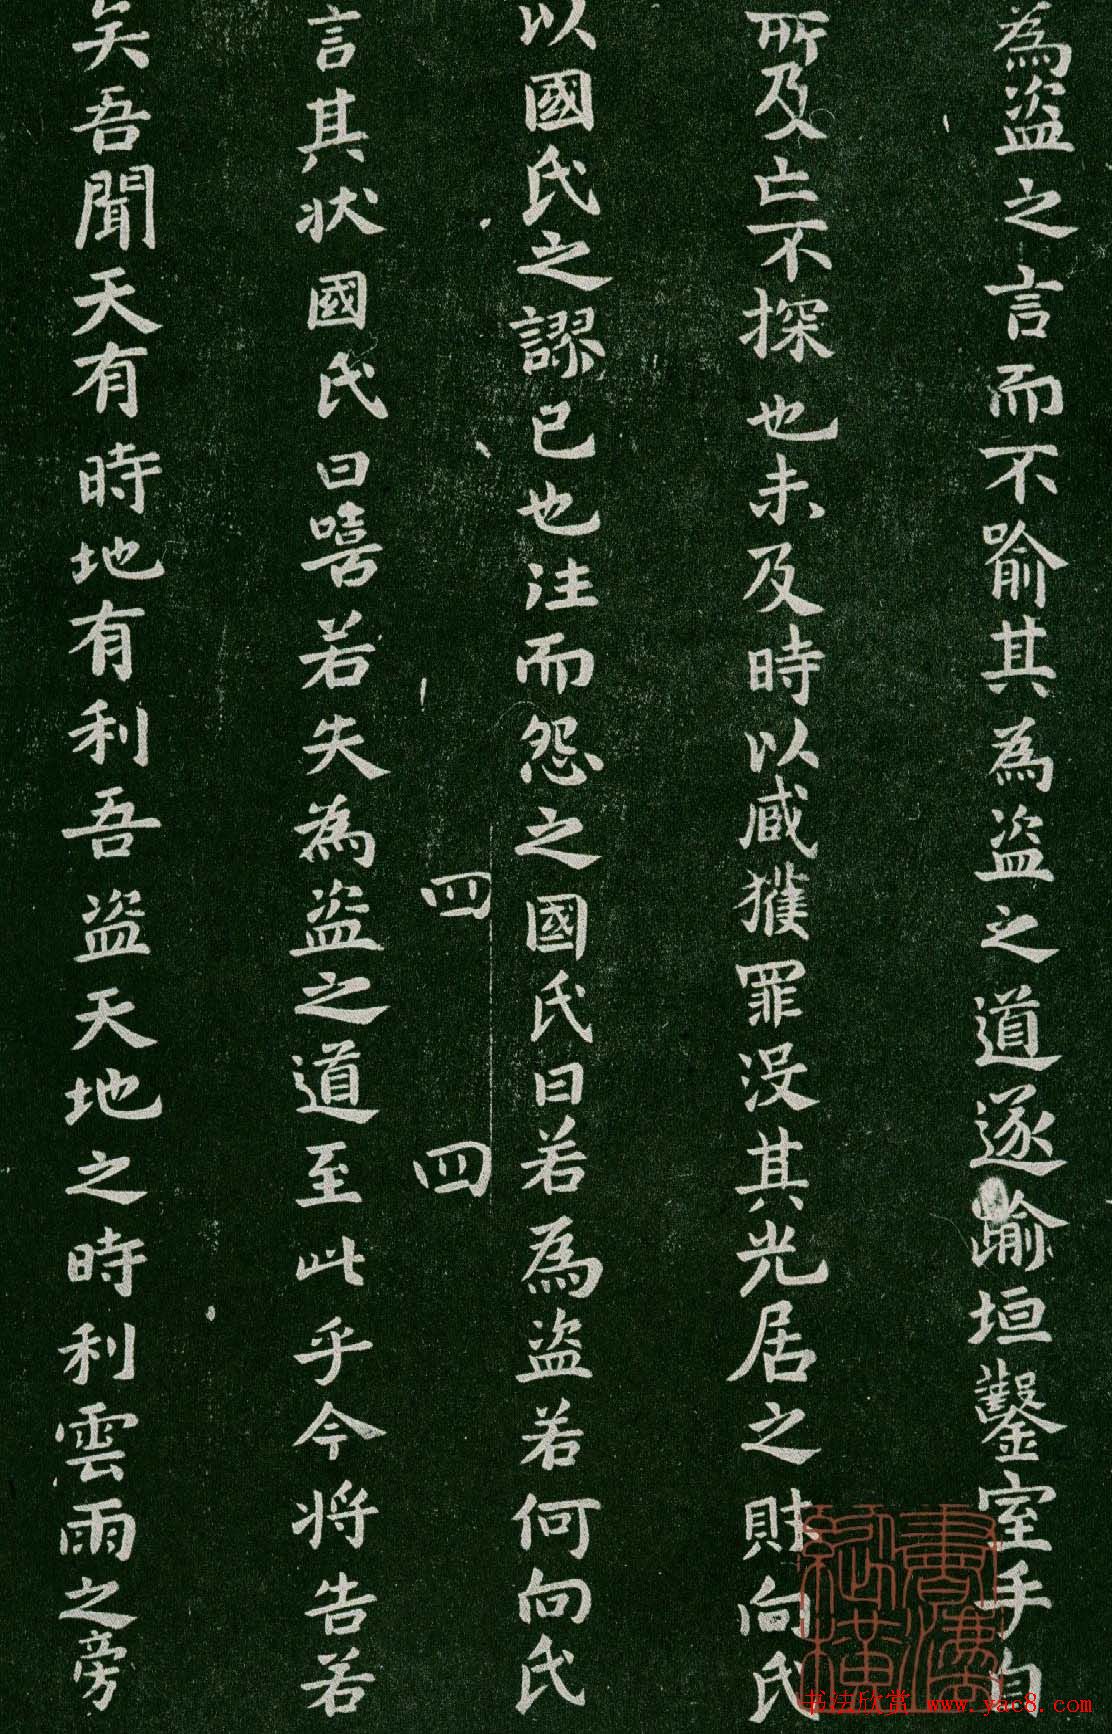 為盗之言而不喻其為盗之道遂踰垣鑿室手目
所及亡不探也未及時以臧獲罪沒其先居之財向氏
以國氏之謬已也往而怨之國氏曰若為盗若何向氏
四 四
言其狀國氏曰嘻若失為盗之道至此乎今將告若
矣吾聞天有時地有利吾盗天地之時利雲雨之旁
書法欣赏 www.yac8.com